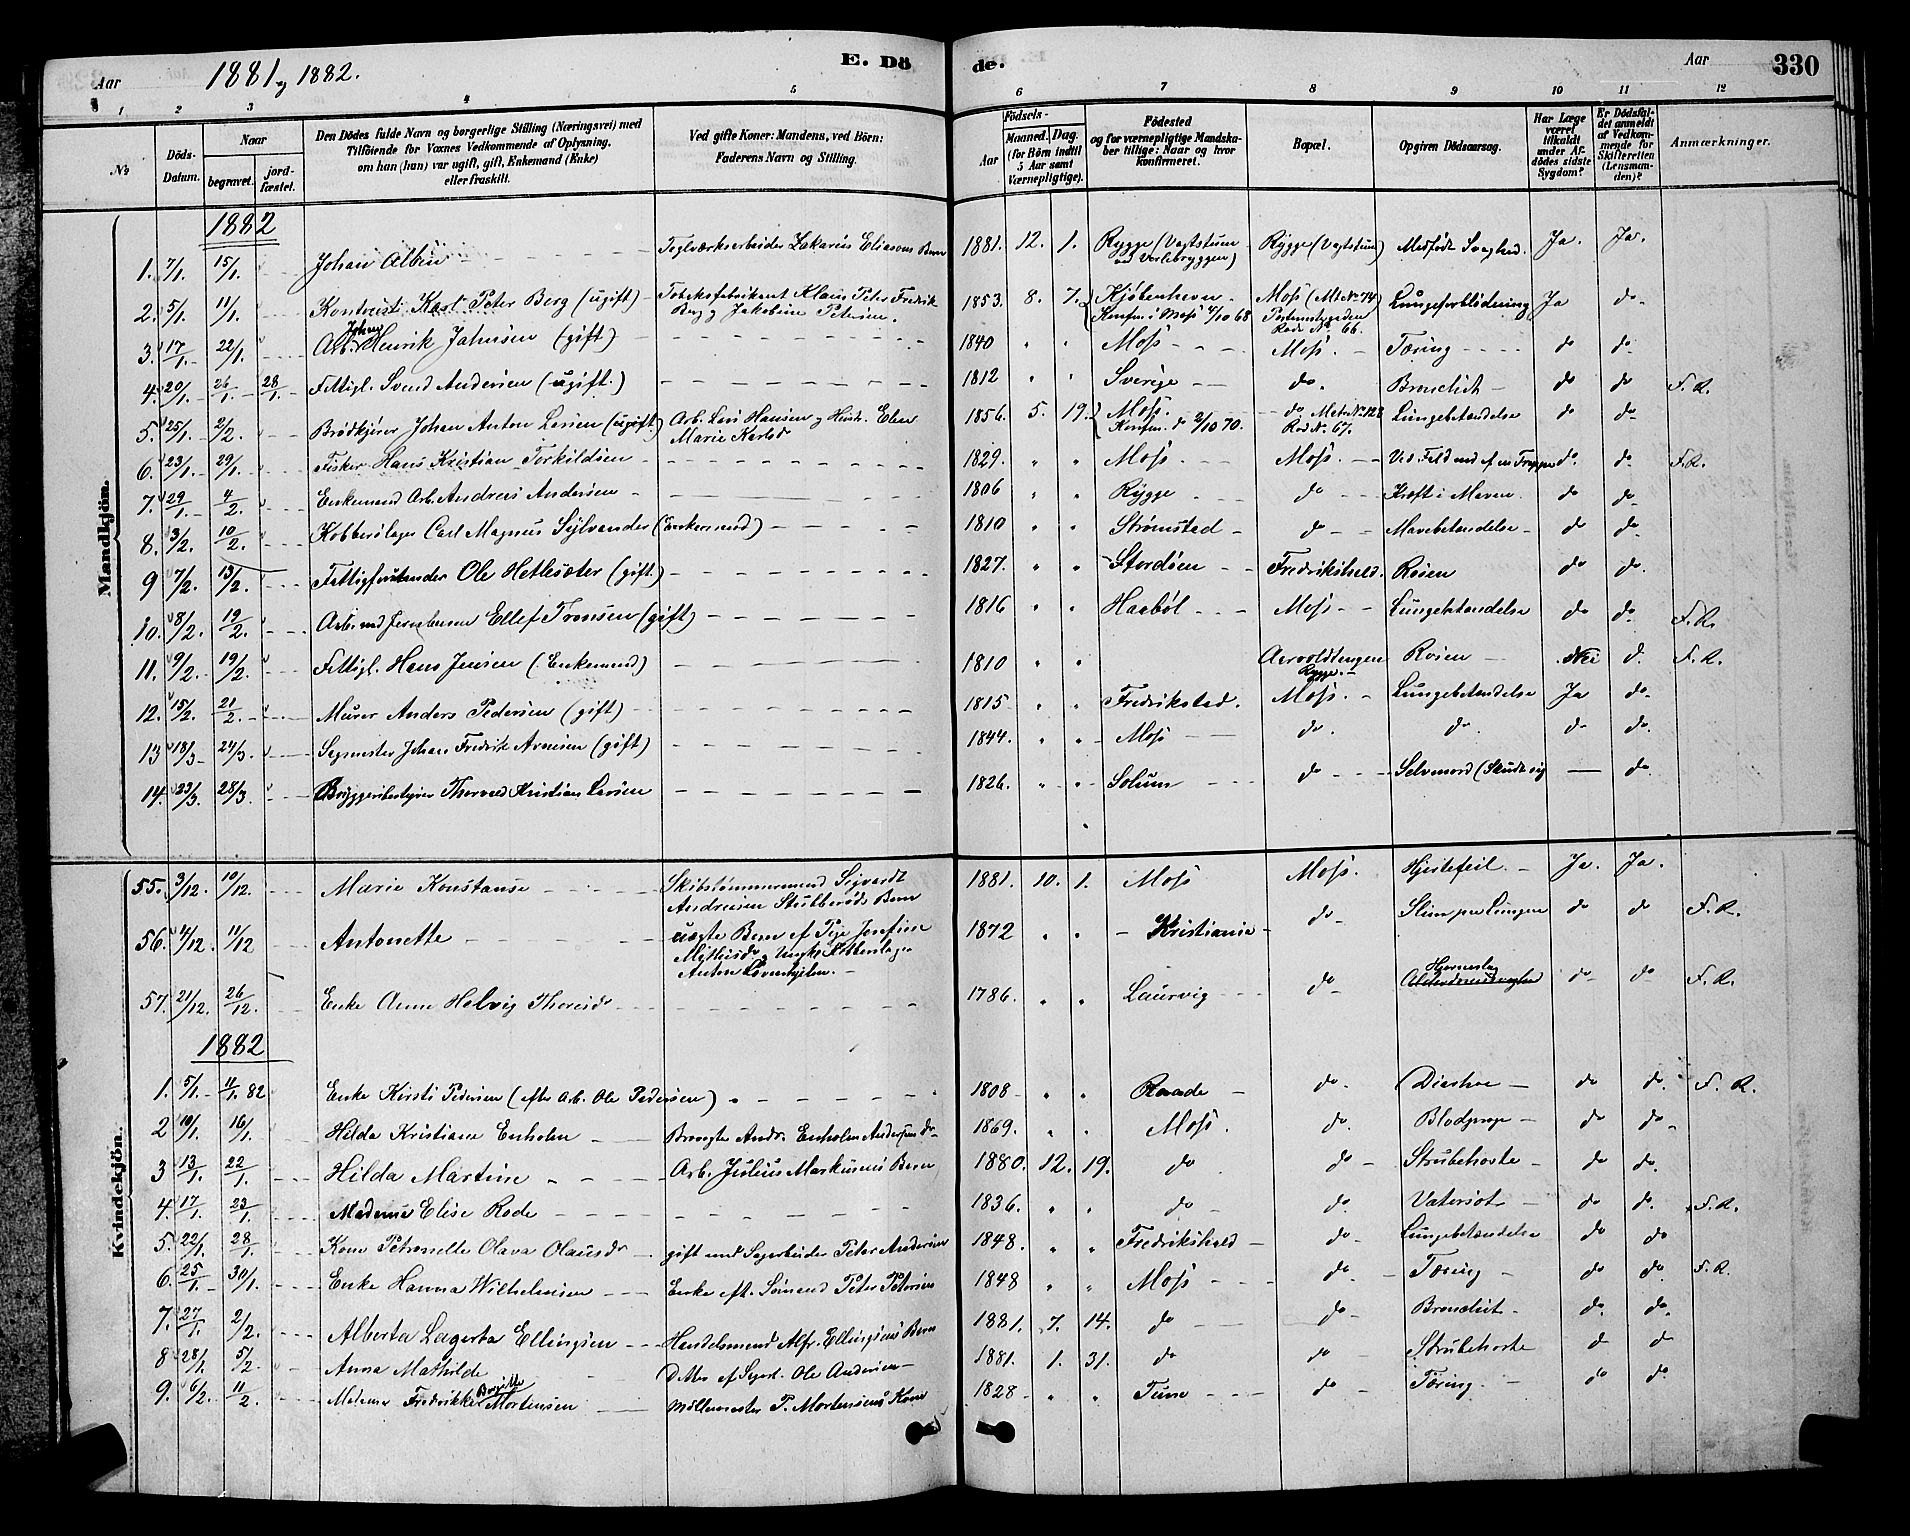 Aar 1881 og 1882. E. Dö de. Aar 330
1 2 3 4 5 6 7 8 9 10 11 12
№ Döds-Datum. Naar begravet. jord-fæstet. Den Dödes fulde Navn og borgerlige Stilling (Næringsvei) med Tilföiende for Voxnes Vedkommende af Oplysning, om han (hun) var ugift, gift, Enkemand (Enke) eller fraskilt. Ved gifte Koner: Mandens, ved Börn: Faderens Navn og Stilling. Födsels- Aar Maaned. Dag. (for Börn indtil 5 Aar samt Værnepligtige). Födested og for værnepligtige Mandskaber tillige: Naar og hvor konfirmeret. Bopæl. Opgiven Dödsaarsag. Har Læge været tilkaldt under Afdödes sidste Sygdom? Er Dödsfaldet anmeldt af Vedkommende for Skifteretten (Lensmanden)? Anmærkninger.
Mandkjön.
1882
1. 7/1 15/1 Johan Albin Teglværksarbeider Zakarius Eliasens Barn 1881. 12. 1. Rygge (Vagtstuen ved Værlebryggen) Rygge (Vagtstuen) Medfødt Svaghed. Ja. Ja.
2. 5/1 11/1 Kontorist Karl Peter Berg (ugift) Tobaksfabrikant Klaus Peter Fredrik Berg og Jakobine Petersen. 1853. 8. 7. Kjøbenhavn. Konfm. i Moss 4/10 68 Moss (Mt No 74) Rode No 66. Lungeforblødning Ja do
3. 17/1 22/1 Arb. Johan Henrik Johnsen (gift) 1840 " " Moss Moss. Tæring do do
4. 20/1 26/1 28/1 Fattigl. Svend Andersen (ugift.) 1812 " " Sverige do. Bronchit do do F. R.
5. 25/1 2/2. Brødkjører Johan Anton Larsen (ugift) Arb. Lars Hansen og Hustr. Elen Marie Karlsd 1856. 5. 19. Moss. Konfm. do 2/10 70. do Matr No 128 Rod No 67. Lungebetændelse do do
6. 23/1 29/1 Fisker Hans Kristian Torkildsen 1829. " " Moss. Moss. Ved Fald ned af en Trappe do. do F. R.
7. 29/1 4/2. Enkemand Arb. Andreas Andersen 1806 " " Rygge do Kræft i Maven do do
8. 3/2. 10/2. Kobberslager Carl Magnus Sylvander (Enkemand) 1810 " " Strømstad do Mavebetændelse do do
9 7/2. 13/2. Fattigforstander Ole Hetlesæter (gift.) 1827. " " Stordøen Fredrikshald. Rosen do do.
10. 8/2. 19/2. Arb. ved Jernbanen Ellef Tronsen (gift) 1816 " " Haabøl Moss Lungebetændelse do do. F. R.
11. 9/2 19/2. Fattigl. Hans Jensen (Enkemand) 1810 " " Aarvoldtangen Rygge. Rosen Nei d. F. R.
12. 15/2. 21/2. Murer Anders Pedersen (gift) 1815 " " Fredrikstad. Moss. Lungebetændelse Ja do
13 18/3 24/3. Sagmester Johan Fredrik Arnesen (gift) 1844. " " Moss do. do. do do.
14. 23/3. 28/3. Bryggeribestyrer Thorvald Kristian Larsen 1826. " " Solum do Selvmord (Skudt sig — do.
Kvindekjön.
55. 3/12. 10/12. Marie Konstanse Skibstømmermand Sigvardt Andreasen Stubberøds Barn 1881. 10. 1. Moss Moss. Hjertefeil. Ja. Ja.
56. 4/12. 11/12 Antonette uægte Barn af Pige Josefine Mathisd. og Ungk. Anton Løvenhjelm. 1872 " " Kristiania do Slim paa Lungen do do F. R.
57. 21/12. 26/12. Enke Anne Helvig Thoresd. 1786. " " Laurvig do Hjerneslag Alderdomssvaghed do do F. R.
1882
1. 5/1 11/1. 82 Enke Kirsti Pedersen (efter Arb. Ole Pedersen) 1808 " " Raade do. Diarhoe do do. F. R.
2 10/1. 16/1. Hilda Kristiane Enholm Andr. Enholm Andersens do 1869. " " Moss. do. Blodgang do do
3 13/1. 22/1. Hilda Martine Arb. Julius Markusens Barn 1880. 12. 19. do do Strubehoste do do.
4. 17/1. 23/1. Madame Elise Rode 1836. " " do do. Vatersot do do. F. R.
5. 22/1. 28/1. Kone Petronelle Olava Olausdr gift med Sagarbeider Peter Andersen 1848. " " Fredrikshald do Lungebetændelse do do
6. 25/1. 30/1. Enke Hanna Wilhelmsen Enke eft. Sømand Peter Petersen 1848 " " Moss do Tæring do do F. R.
7. 27/1. 2/2. Alberta Lagerta Ellingsen Handelsmand Alfr. Ellingsens Barn 1881. 7. 14. do do Bronchit do. do
8 28/1 5/2. Anna Mathilde Datter af Ole Andersen 1881. 1. 31. do do Strubehoste d do
9. 6/2. 11/2. Madame Fredrikke Borritte Mortensen Møllemester P. Mortensens Kone 1828 " " Tune do Tæring. do do